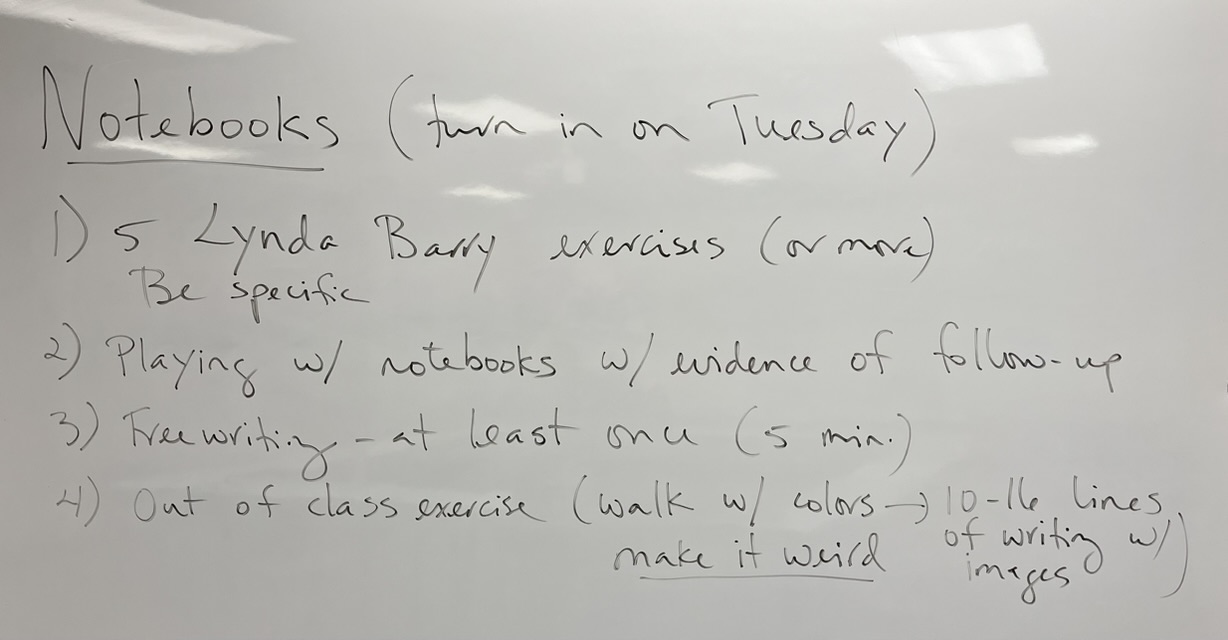 Notebooks (turn in on Tuesday)
1) 5 Lynda Barry exercises (or more)
Be specific
2) Playing w/ notebooks w/ evidence of follow-up
3) Freewriting - at least once (5 min.)
4) Out of class exercise (walk w/ colors → 10-16 lines
of writing w/
make it weird images)